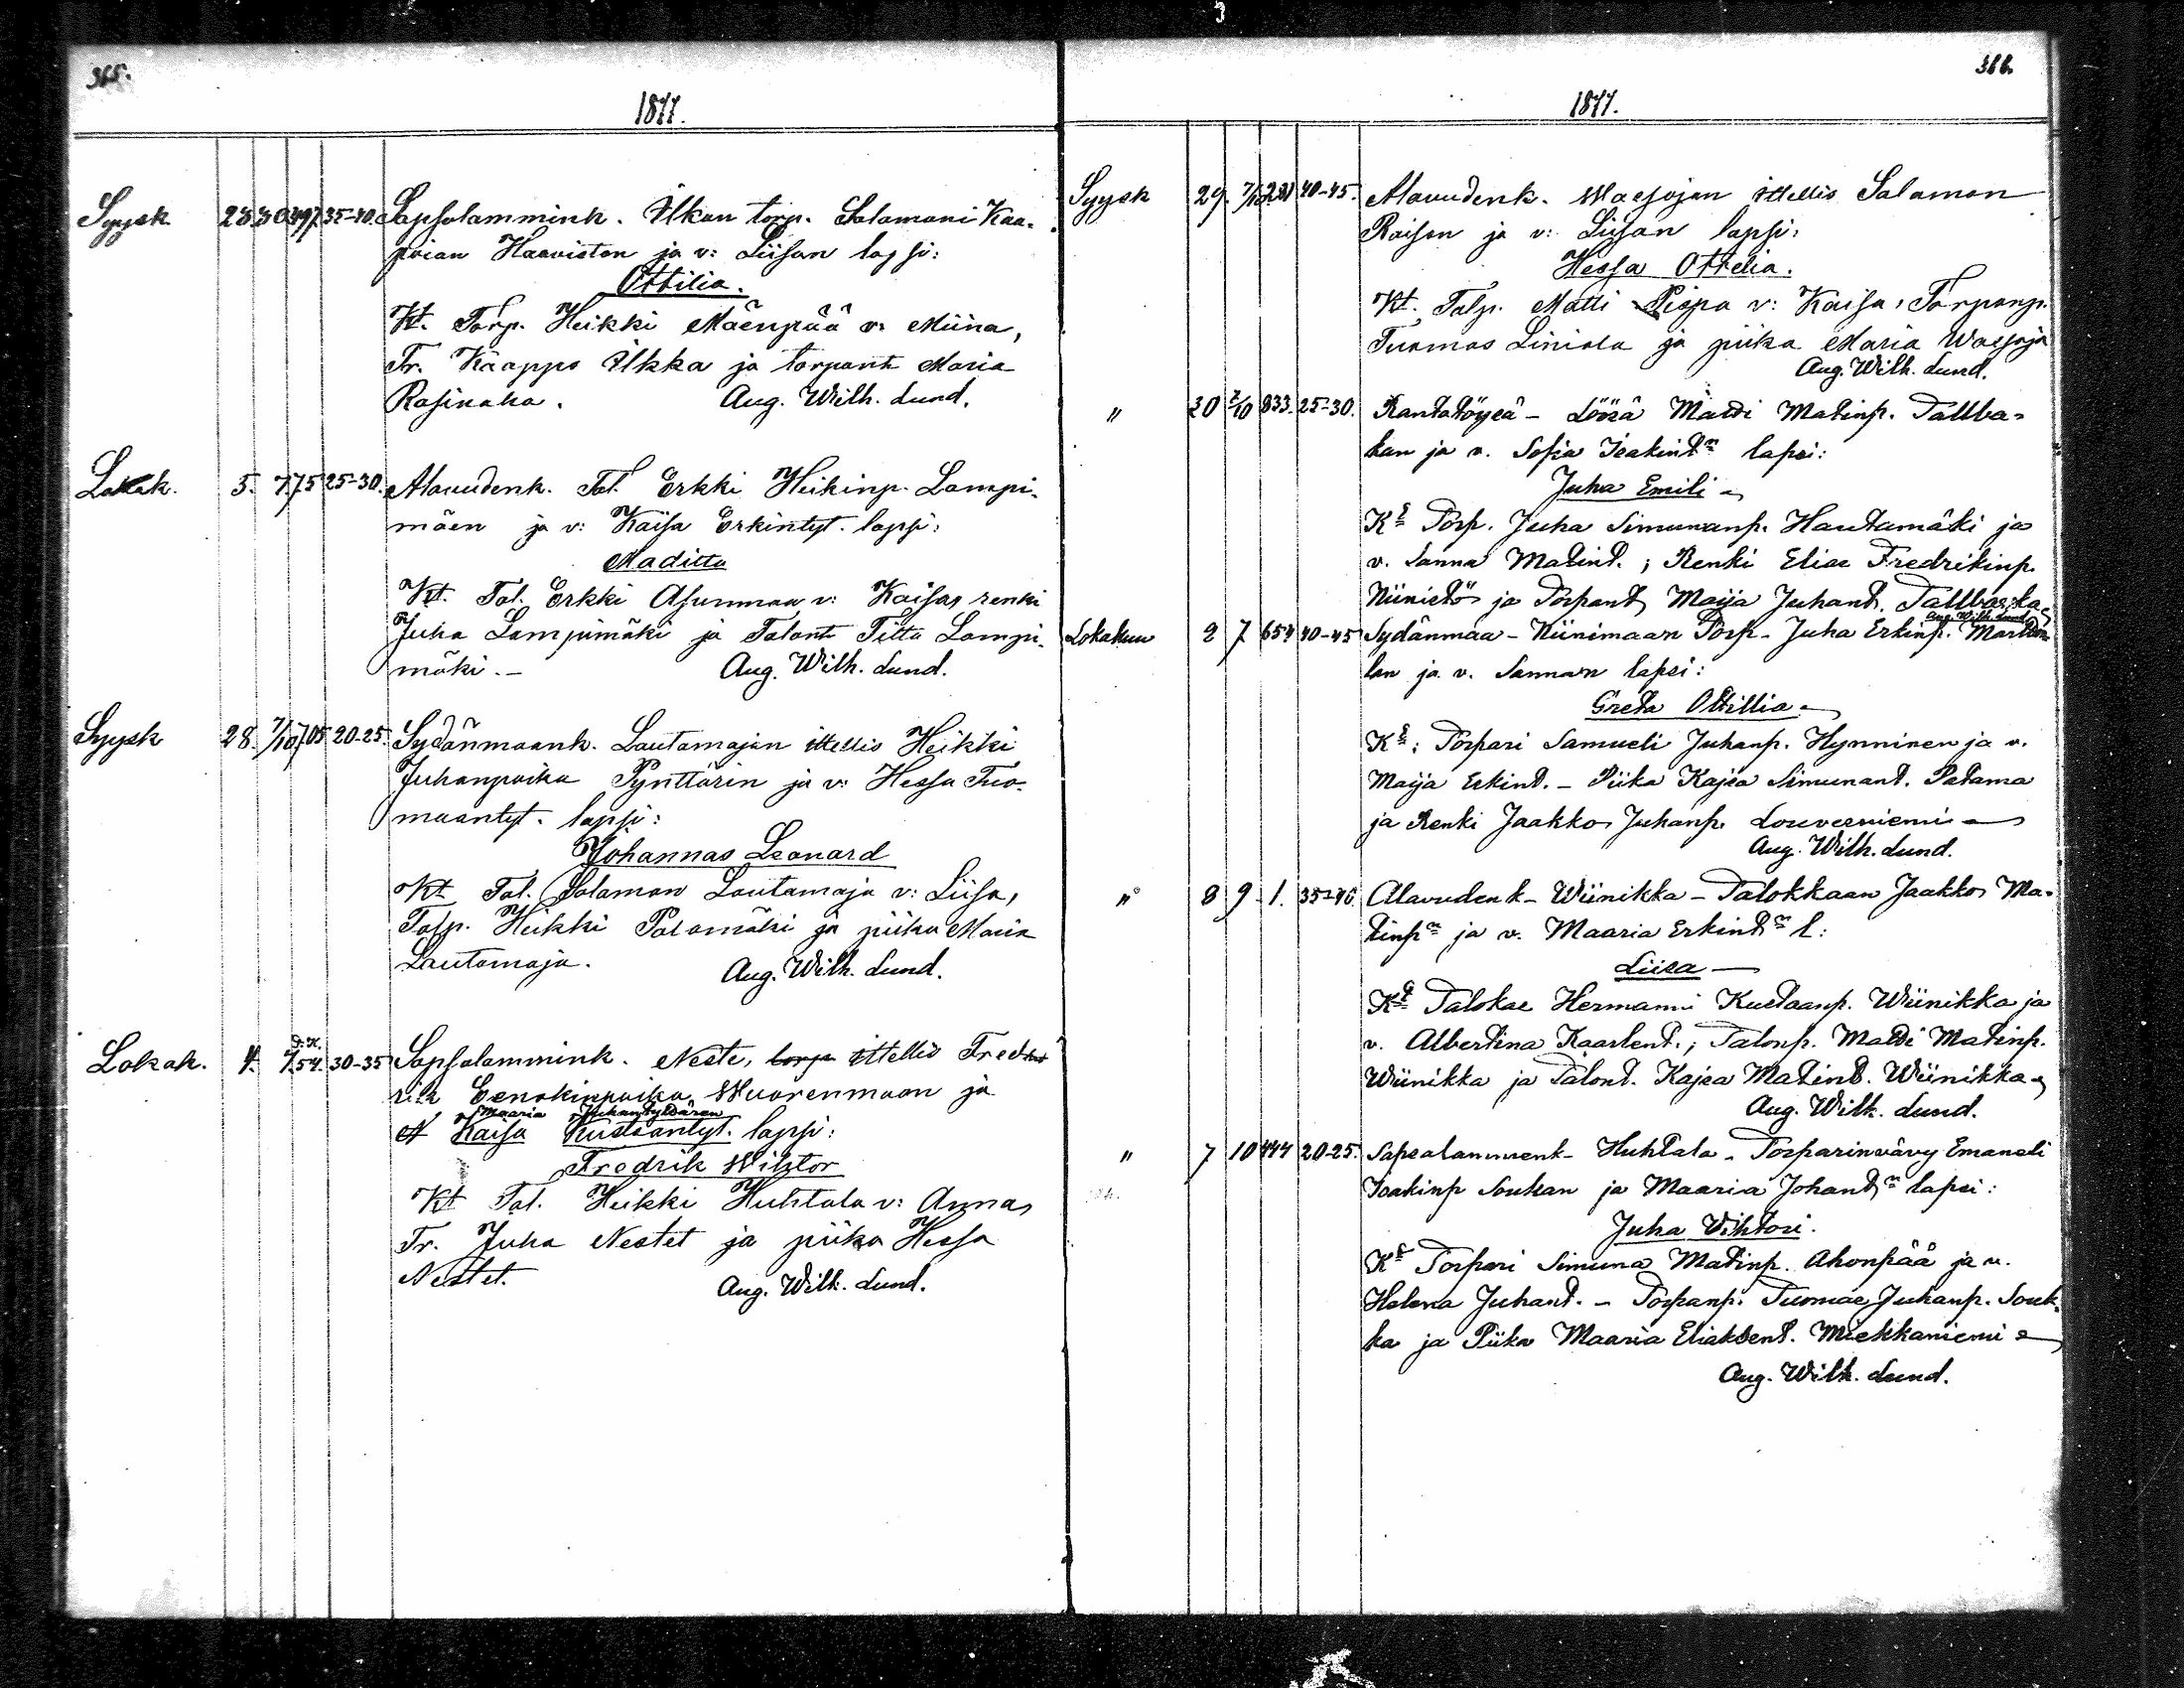 365.
1877.
Syysk 23. 30. 497. 35-40. Sapsalammink. Ilkan torp. Salamoni Kaa-
poian Haaviston ja v: Liisan lapsi:
Ottilia.
Kt. Torp. Heikki Mäenpää v: Miina,
Tr. Kaappo Ilkka ja torpant Maria
Rasinaho. Aug. Wilh. Lund.
Lokak. 5. 7. 75 25-30. Alavudenk. Tal. Erkki Heikinp. Lampi-
mäen ja v: Kaisa Erkintyt. lapsi:
Maditta
Kt. Tal. Erkki Asunmaa v: Kaisa, renki
Juha Lampimäki ja Talont Tilta Lampi-
mäki.- Aug. Wilh. Lund.
Syysk 28. 7/10 705 20-25. Sydänmaank. Lautamajan ittellis Heikki
Juhanpoika Pynttärin ja v: Hessa Tuo-
maantyt. lapsi:
Johannas Leonard
Kt Tal. Salamon Lautamaja v: Liisa,
Talp. Heikki Palomäki ja piika Maria
Lautamaja. Aug. Wilh. Lund.
Lokak. 4. 7. 54. 30-35 Sapsalammink. Neste, torp. ittellis Fred
rik Eenokinpoika Wuorenmaan ja
Maaria Juhantyttären
Kaisa Kustaantyt. lapsi:
Fredrik Wihtor
Kt Tal. Heikki Huhtala v: Anna,
Tr. Juha Nestet ja piika Hessa
Nestet. Aug. Wilh. Lund.
366.
1877.
Syysk 29. 7/10 221 40-45. Alavudenk. Wasojan ittellis Salamon
Raisan ja v: Liisan lapsi:
Hessa Ottelia.
Kt. Talp. Matti Pispa v: Kaisa, Torpanp.
Tuomas Liniala ja piika Maria Wasoja
Aug. Wilh. Lund.
" 30 7/10 833. 25-30. Rantatöysä - Löösä Matti Matinp. Tallba-
kan ja v. Sofia Isakint:n lapsi:
Juha Emili
Kt Torp. Juha Simunanp. Hautamäki ja
v. Sanna Matint.; Renki Elias Fredrikinp.
Niinistö ja Torpant Maija Juhant. Tallbacka
Aug. Wilh. Lund
Lokakuu 2 7 654 40-45 Sydänmaa - Kiinimaan Torp. Juha Erkinp. Martti-
lan ja v. Sannan lapsi:
Greta Ottillia
Kt: Torpari Samueli Juhanp. Hynninen ja v.
Maija Erkint. - Piika Kajsa Simunant. Patama
ja Renki Jaakko Juhanp. Louvesniemi
Aug. Wilh. Lund.
" 8 9 1. 35-40. Alavudenk - Wiinikka - Talokkaan Jaakko Ma-
tinp:n ja v. Maaria Erkint:n l:
Liisa
Kt Talokas Hermanni Kustaanp. Wiinikka ja
v. Albertina Kaarlent.; Talonp. Matti Matinp.
Wiinikka ja Talont. Kajsa Matint. Wiinikka
Aug. Wilh. Lund.
" 7 10 444 20-25. Sapsalammenk - Huhtala - Torparinvävy Emaneli
Isakinp Soukan ja Maaria Johant:n lapsi:
Juha Wihtori.
Kt Torpari Simuna Matinp. Ahonpää ja v.
Helena Juhant. - Torpanp. Tuomas Juhanp. Souk-
ka ja Piika Maaria Eliaksent. Miekkaniemi
Aug. Wilh. Lund.